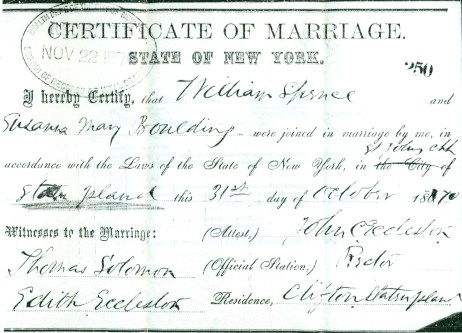 CERTIFICATE OF MARRIAGE.
NOV 22
STATE OF NEW YORK.
250
I hereby Certify, that William Spence and
Susanna May Boulding were joined in marriage by me, in
St Johns Chh
accordance with the Laws of the State of New York, in the City of
Staten Island this 31st day of October 1870
Witnesses to the Marriage: (Attest,) John C Eccleston
Thomas Solomon (Official Station,) Rector
Edith Eccleston Residence, Clifton Staten Island